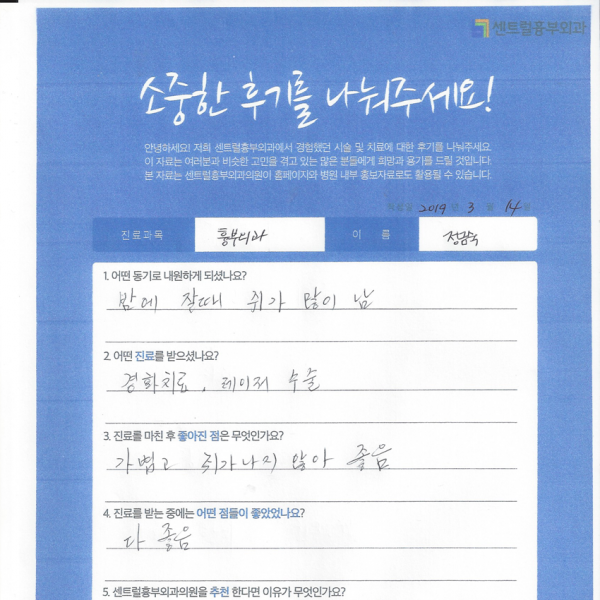 센트럴흉부외과
소중한 후기를 나눠주세요!
안녕하세요! 저희 센트럴흉부외과에서 경험했던 시술 및 치료에 대한 후기를 나눠주세요.
이 자료는 여러분과 비슷한 고민을 겪고 있는 많은 분들에게 희망과 용기를 드릴 것입니다.
본 자료는 센트럴흉부외과의원이 홈페이지와 병원 내부 홍보자료로도 활용될 수 있습니다.
2019 년 3 월 14 일
진료과목 흉부외과 이 름 정금숙
1. 어떤 동기로 내원하게 되셨나요?
밤에 잘때 쥐가 많이 남
2. 어떤 진료를 받으셨나요?
경화치료, 레이저 수술
3. 진료를 마친 후 좋아진 점은 무엇인가요?
가볍고 쥐가나지 않아 좋음
4. 진료를 받는 중에는 어떤 점들이 좋았었나요?
다 좋음
5. 센트럴흉부외과의원을 추천 한다면 이유가 무엇인가요?